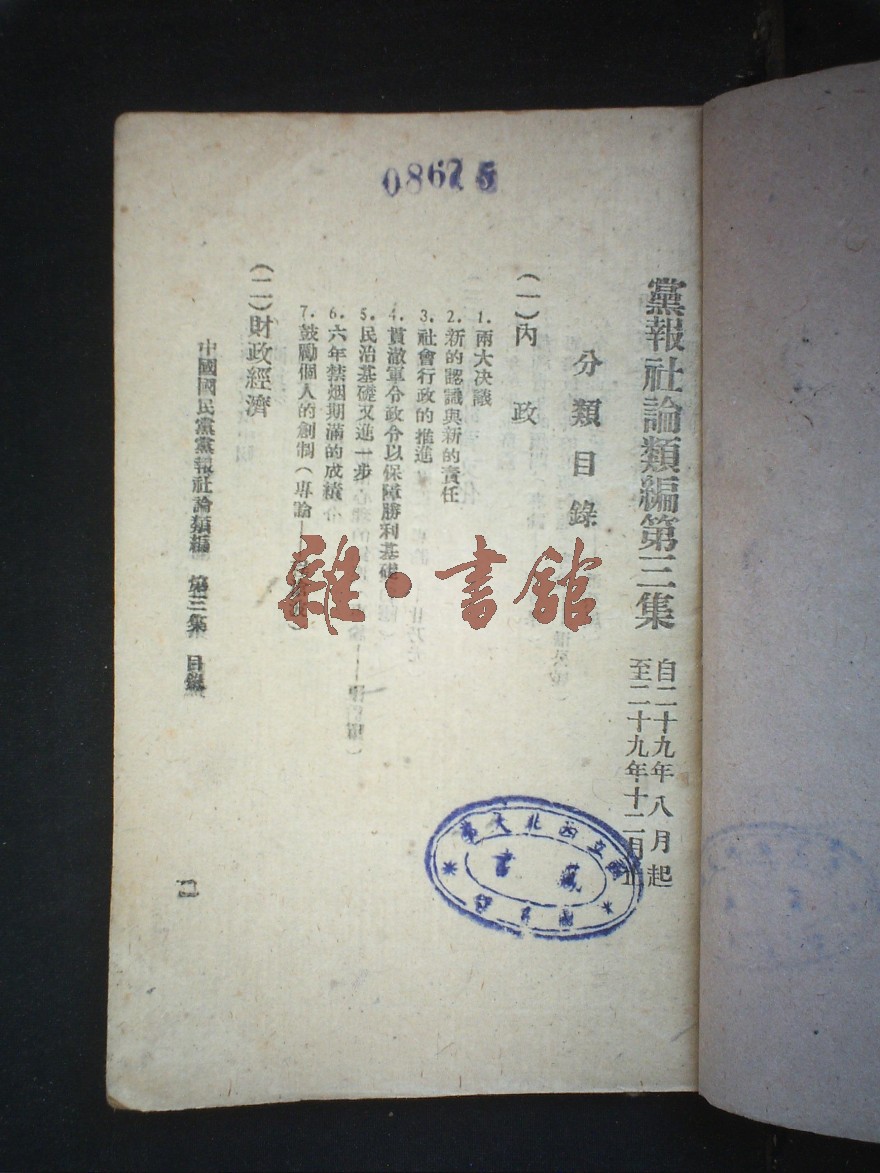 08675
黨報社論類編第三集
自二十九年八月起
至二十九年十二月止
分類目錄
(一)內政
1.兩大決議
2.新的認識與新的責任
3.社會行政的推進
4.貫澈軍令政令以保障勝利基礎
5.民治基礎又進一步
6.六年禁烟期滿的成績
7.鼓勵個人的創制(專論)
(二)財政經濟
中國國民黨黨報社論類編 第三集 目錄
一
國立西北大學
藏書
圖書館
雜·書舘